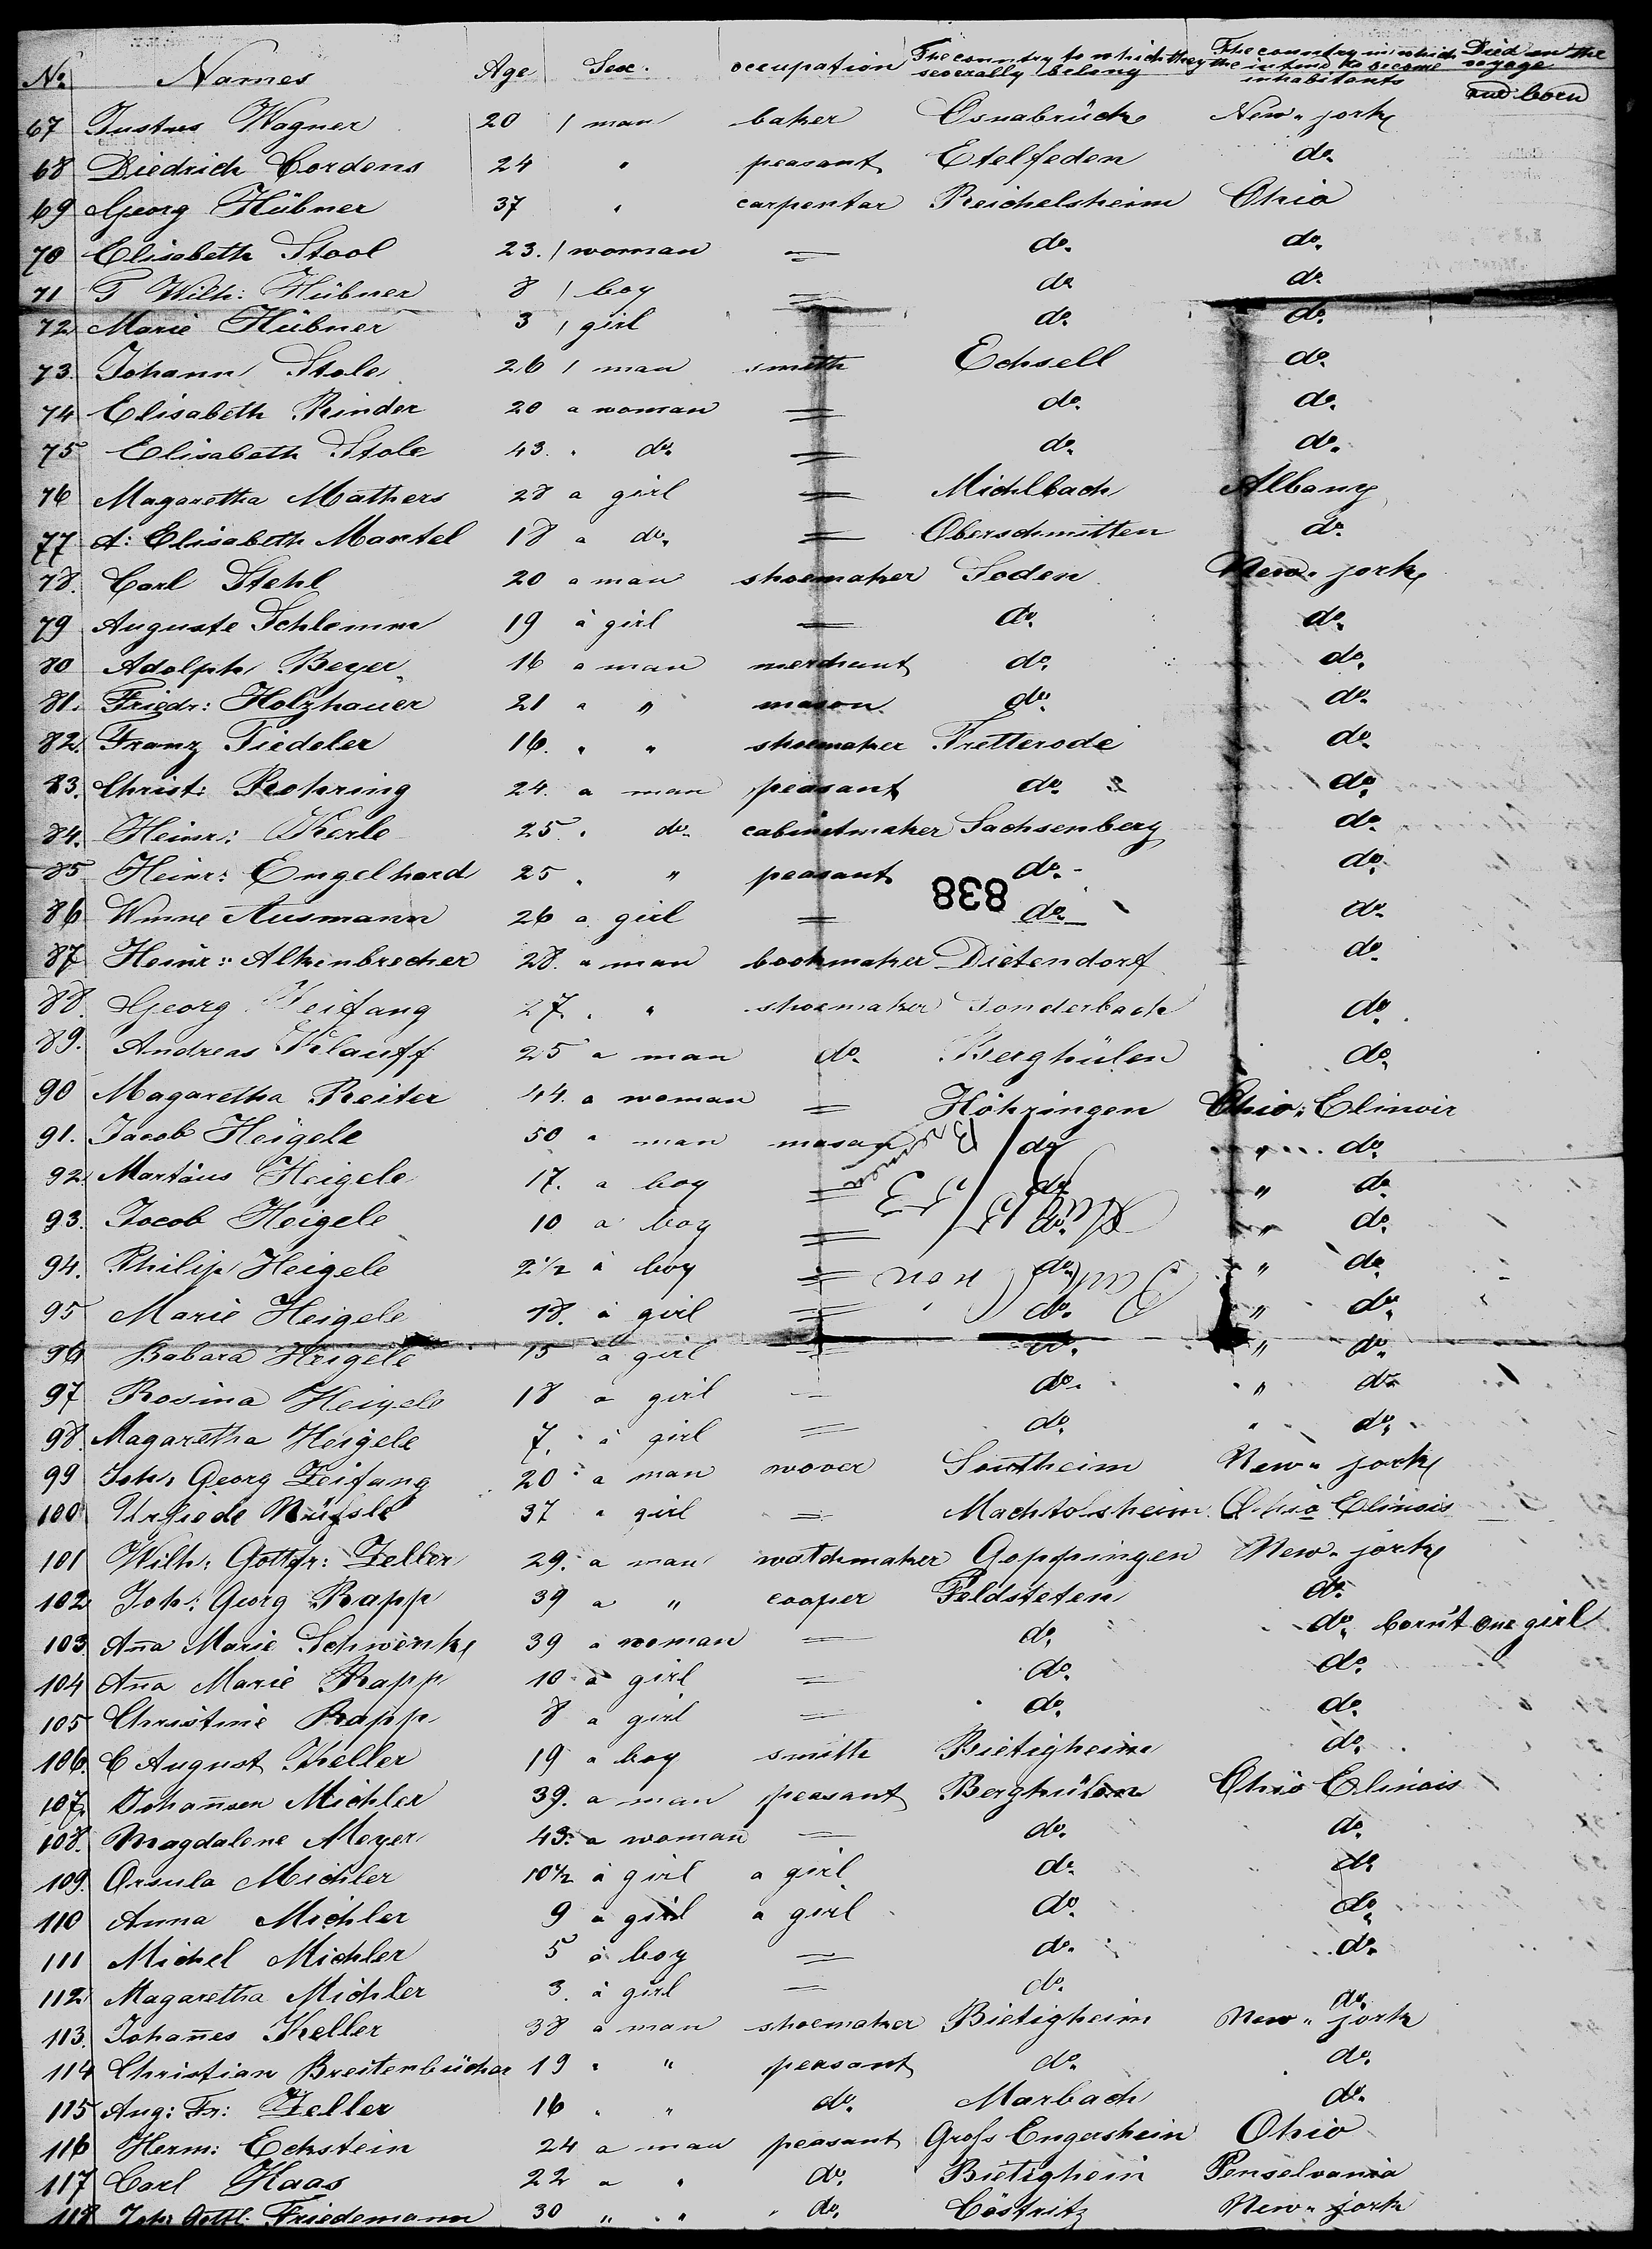 No. Names Age Sex. occupation The country to which they severally belong The country in which the intend to become inhabitants Died on the voyage and born
67 Justus Wagner 20 1 man baker Osnabrück New-jork
68 Diedrich Cordens 24 " peasant Etelfeden do.
69 Georg Hübner 37 " carpentar Reichelsheim Ohio
70 Elisabeth Stool 23. 1 woman = do. do.
71 Wilh: Hübner 8 1 boy = do do.
72 Marie Hübner 3 1 girl do. do.
73. Johann Stole 26 1 man smith Echsell do.
74 Elisabeth Rinder 20 a woman = do. do.
75 Elisabeth Stole 43. " do. = do. do.
76 Magaretha Mathers 28 a girl = Michlbach Albany
77 A: Elisabeth Martel 18 a do. = Oberschmitten do.
78. Carl Stehl 20 a man shoemaker Soden New-jork
79 Auguste Schlemm 19 a girl = do. do.
80 Adolph Beyer 16 a man merchant do. do.
81. Friedr: Holzhauer 21 a " mason do. do.
82. Franz Tiedeler 16. " " shoemaker Fretterode do.
83. Christ: Rohring 24. a man peasant do. do.
84. Heinr: Kerle 25 " do. cabinetmaker Sachsenberg do.
85 Heinr: Engelhard 25 " " peasant do. do.
838
86 Ausmann 26 a girl = do. do.
87 Heinr: Alkenbrecher 28. a man bookmaker Dietendorf do.
88. Georg Zeifang 27. " " shoemaker Sonderbach do.
89. Andreas Klauff 25 a man do. Berghülen do.
90 Magaretha Reiter 44. a woman = Höhringen Ohio, Elinoir
91. Jacob Heigele 50 a man mason do " do.
92. Martäus Heigele 17. a boy = do. " do.
93. Jocob Heigele 10 a boy = do. " do.
94. Philip Heigele 2 1/2 a boy = do. " do.
95 Marie Heigele 18. a girl = do. " do.
96 Babara Heigele 15 a girl = do. " do.
97 Rosina Heigele 18 a girl = do. " do.
98. Magaretha Heigele 7. a girl = do. " do.
99 Joh: Georg Zeifang 20 a man wover Southeim New-jork
100 37 a girl = Machtolsheim Ohio Elinois
101 Wilh: Gottfr: Zeller 29. a man watchmaker Goppingen New-jork
102 Joh: Georg Rapp 39 a " cooper Feldsteten do.
103. Aña Marie Schwenk 39 a woman = do. do. born't one girl
104 Aña Marie Rapp 10 a girl = do. do.
105 Christine Rapp 8 a girl = do. do.
106. C August Keller 19 a boy smith Bietigheim do.
107. Johañsen Michler 39. a man peasant Berghülen Ohio Elinois
108. Magdalene Meyer 43. a woman = do. do.
109. Orsula Michler 10 1/2 a girl a girl do. do.
110 Anna Michler 9 a girl a girl do. do.
111 Michel Michler 5 a boy = do. do.
112 Magaretha Michler 3. a girl = do. do.
113. Johañes Keller 38 a man shoemaker Bietigheim New-jork
114 Christian Breitenbücher 19 " " peasant do. do.
115 Aug: Fr: Zeller 16 " " do. Marbach do.
116 Herm: Eckstein 24 a man peasant Groſs Engersheim Ohio
117 Carl Haas 22 a " do. Bietigheim Penselvania
118 Joh: Gottl: Friedemann 30 " " do. Cöstritz New-jork